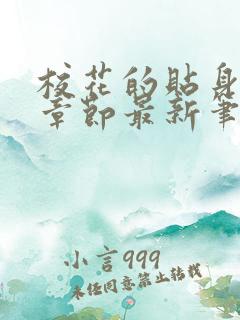 校花的贴身
章节最新笔
小言999
未经同意禁止转载